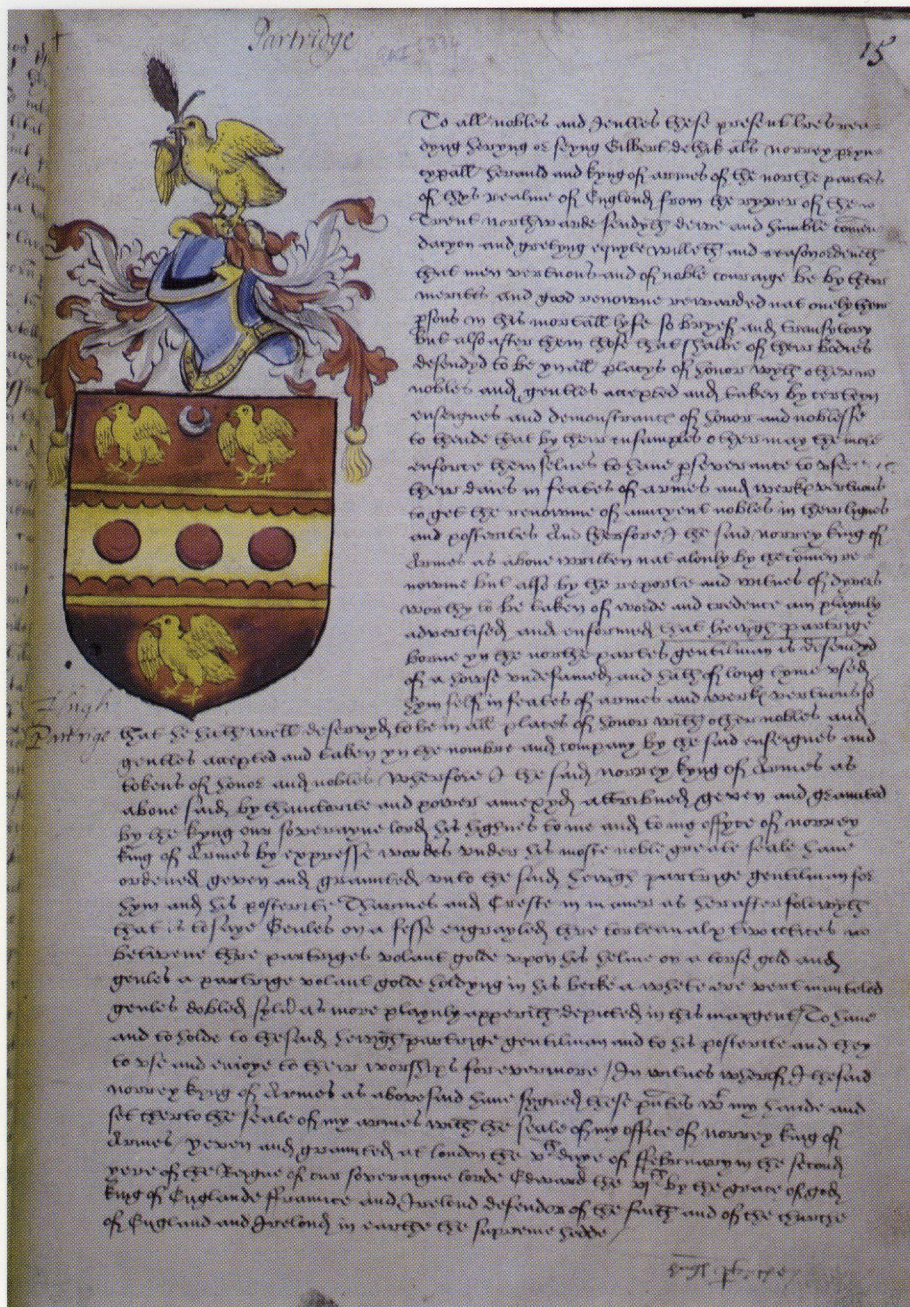 Partridge
15
To all nobles and Gentles these present lres rea-
dyng heryng or seyng Gilbert dethik als Norrey pryn-
cypall herauld and kyng of armes of the northe partes
of thys realme of Englond from the ryver of the
Trent northwarde sendyth dewe and humble comen-
dacyon and gretyng equyte willeth and reason ordeneth
that men vertuous and of noble courrage be by their
meritts and good renowne rewarded nat onely their
psons in this mortall lyfe so bryef and transytory
but also after them those that shalbe of their bodies
desendyd to be yn all placys of honor wyth other
nobles and gentles accepted and taken by certeyn
enseignes and demonstrance of honor and noblesse
to thende that by their ensamples other may the more
enforce themselves to have pseverance to use
their daies in feates of armes and werkes vertuous
to get the renowne of auncyent nobles in their lignes
and posterites And therfore I the said norrey king of
Armes as above written nat alonly by the comen re-
nowne but also by the reporte and witnes of dyvers
worthy to be taken of worde and credence am playnly
advertised and enformed that hewgh partrige
borne yn the northe partes gentilman is desendyd
of a howse undefamed and hath of long tyme used
hym self in feates of armes and werkes vertuous so
Hugh
Partrige
that he hath well deservyd to be in all places of honor with other nobles and
gentles accepted and taken yn the nombre and company by the said enseignes and
tokens of honor and nobles Wherfore I the said norrey kyng of Armes as
above said by thauctorite and power annexyd attribued geven and graunted
by the kyng our soverayne lord his highnes to me and to my offyce of norrey
king of Armes by expresse wordes under his moste noble greate seale have
ordened geven and graunted unto the said hewgh partrige gentilman for
hym and his posterite Tharmes and Creste in maner as herafter folowyth
that is to saye Geules on a fesse engrayled thre torteaulx two cotices
betwene thre partriges volant golde upon his helme on a torse gold and
geules a partrige volant golde holdyng in his becke a whete ere vert manteled
geules dobled sylver as more playnly apperith depicted in this margent To have
and to holde to the said hewgh partrige gentilman and to his posterite and they
to use and enioye to their worships for evermore In witnes wherof I the said
norrey kyng of Armes as above said have sygned these pntes wt my hande and
set therto the seale of my armes with the seale of my office of norrey king of
Armes yeven and graunted at london the daye of ffebruary in the second
yere of the Reigne of our soveraigne lorde Edward the vjth by the grace of god
king of Englande ffraunce and Irelond defender of the faith and of the churche
of England and Irelond in earthe the supreme hedde